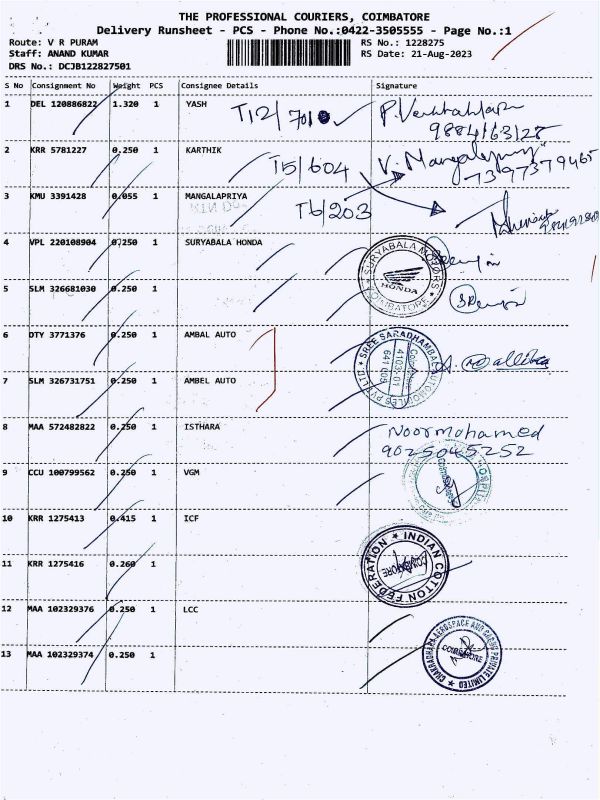 THE PROFESSIONAL COURIERS, COIMBATORE
Delivery Runsheet - PCS - Phone No.:0422-3505555 - Page No.:1
Route: V R PURAM RS No.: 1228275
Staff: ANAND KUMAR RS Date: 21-Aug-2023
DRS No.: DCJB122827501
S No Consignment No Weight PCS Consignee Details Signature
1 DEL 120886822 1.320 1 YASH T12/701
9884163128
2 KRR 5781227 0.250 1 KARTHIK T5/604 V. 7397379465
3 KMU 3391428 0.055 1 MANGALAPRIYA T6/203
4 VPL 220108904 0.250 1 SURYABALA HONDA SURYABALA MOTORS HONDA COIMBATORE
5 SLM 326681030 0.250 1
6 DTY 3771376 0.250 1 AMBAL AUTO SREE SARADHAMBAL AUTOMOBILES PVT LTD 4103-01 Coimbatore 641 005
7 SLM 326731751 0.250 1 AMBEL AUTO
8 MAA 572482822 0.250 1 ISTHARA Noormohamed
9025045252
9 CCU 100799562 0.250 1 VGM HOSPITAL
10 KRR 1275413 0.415 1 ICF
11 KRR 1275416 0.260 1 INDIAN COTTON FEDERATION
12 MAA 102329376 0.250 1 LCC
13 MAA 102329374 0.250 1 COIMBATORE PRIVATE LIMITED